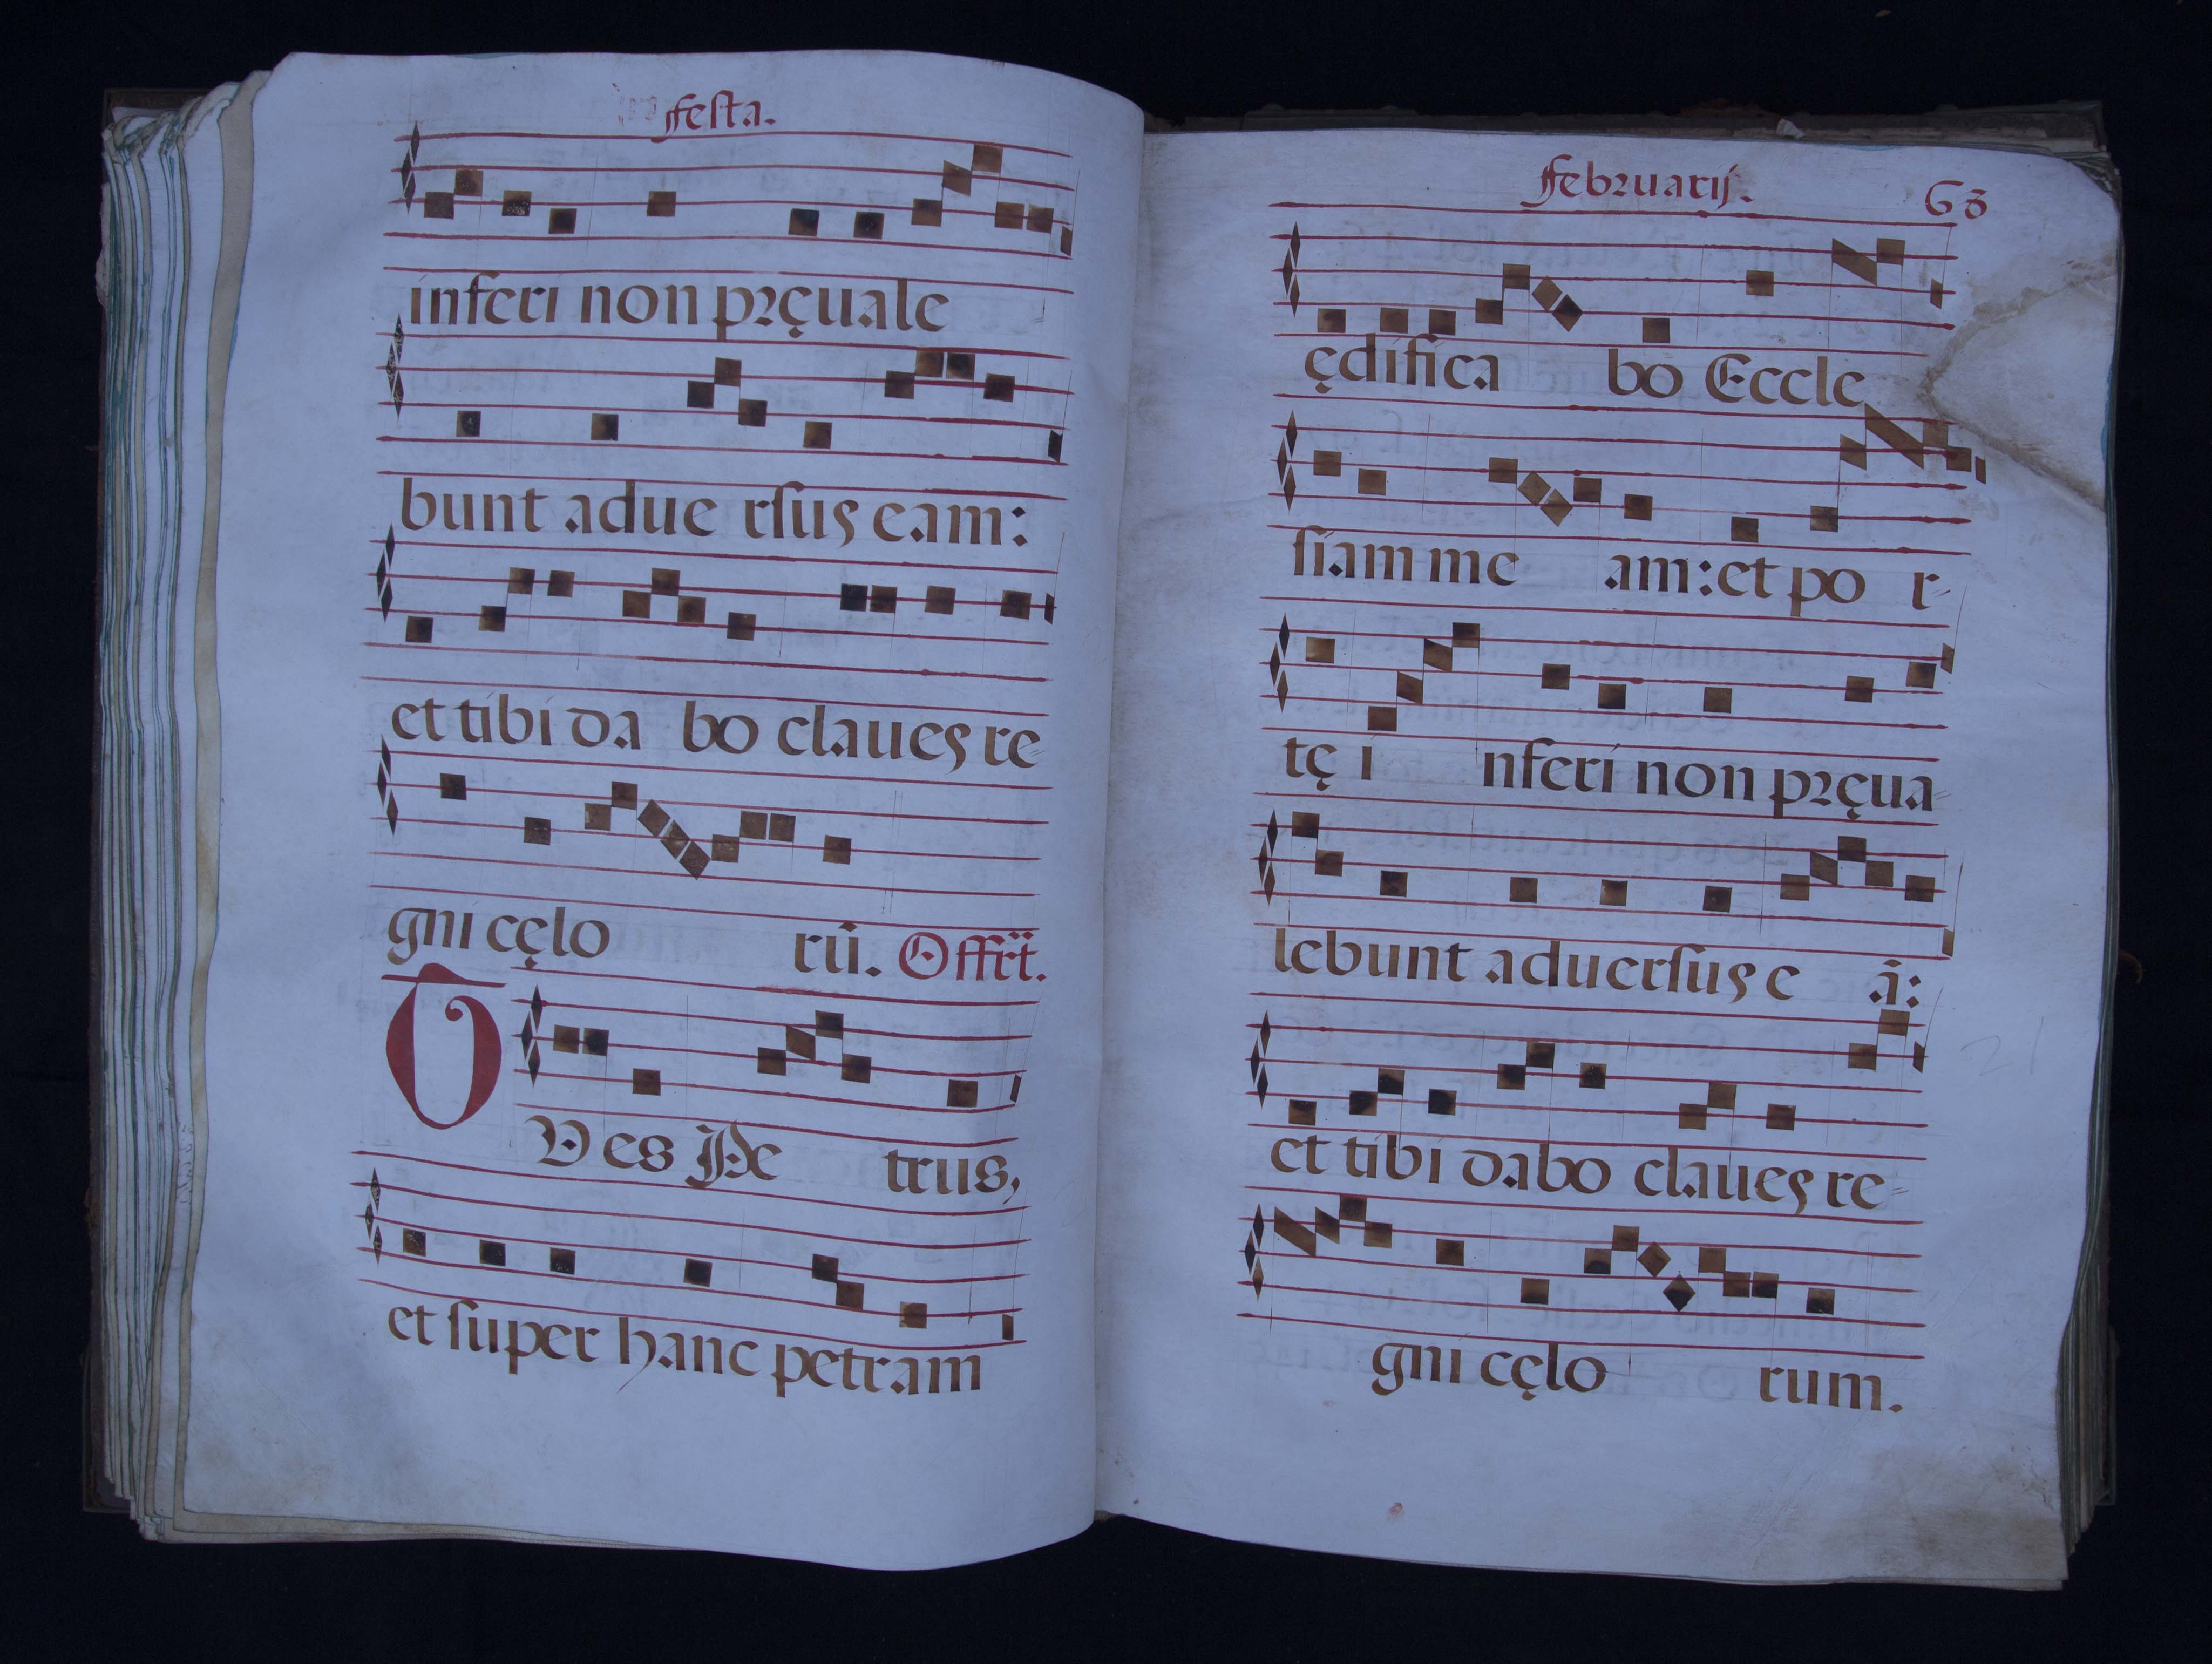 festa.
inferi non pręuale
bunt adue rſus eam:
et tibi da bo claues re
gni cęlo rū. Offr̄t.
T
V es Pe trus,
et ſuper hanc petram
februarij. 63
ędifica bo Eccle
ſiam me am: et po r-
tę i nferi non pręua-
lebunt aduerſus e ā:
et tibi dabo claues re-
gni cęlo rum.